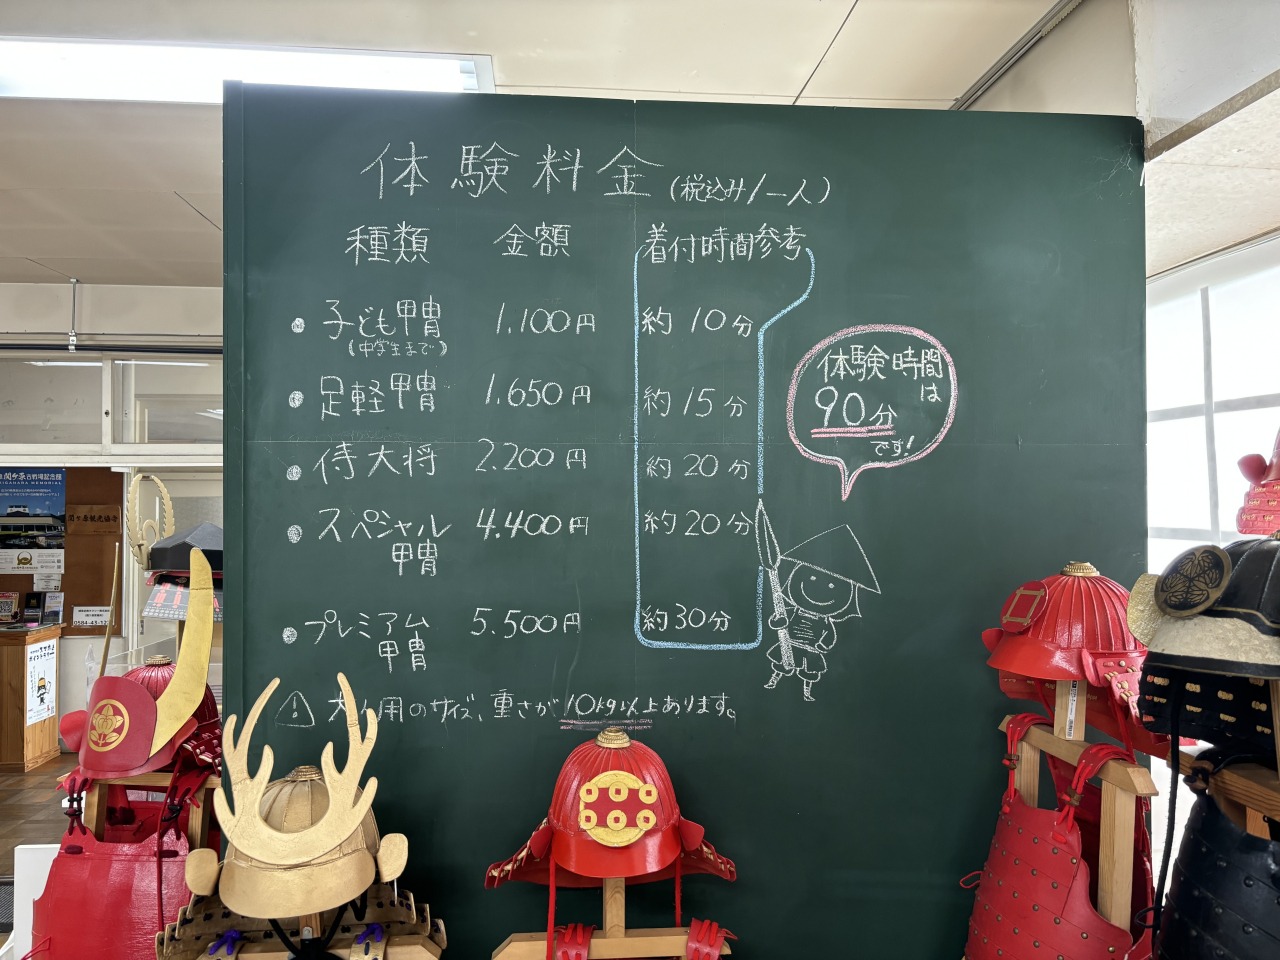 体験料金(税込み/一人)
種類 金額 着付時間参考
・子ども甲冑 1.100円 約10分
(中学生まで)
・足軽甲冑 1.650円 約15分
・侍大将 2.200円 約20分
・スペシャル 4.400円 約20分
甲冑
・プレミアム 5.500円 約30分
甲冑
大人用のサイズ、重さが10kg以上あります。
体験時間
は
90分
です!
関ケ原古戦場記念館
SEKIGAHARA MEMORIAL
関ケ原観光協会
0584-43-